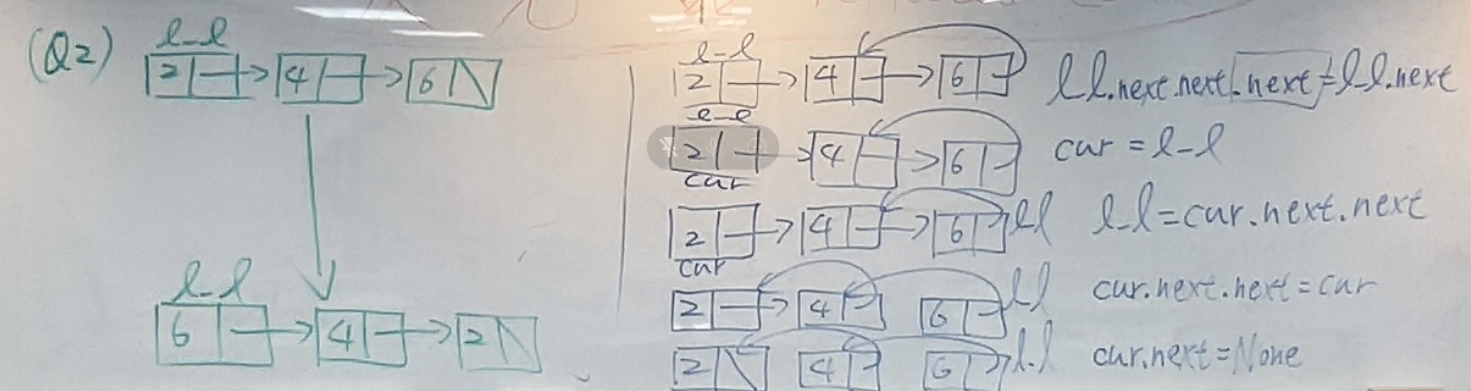 (Q2) l-l
2 4 6
l-l
6 4 2
l-l
2 4 6 l l.next.next.next=l-l.next
l-l
2 4 6 cur = l-l
cur
2 4 6 l l l-l=cur.next.next
cur
2 4 6 l l cur.next.next=cur
2 4 6 l.l cur.next=None